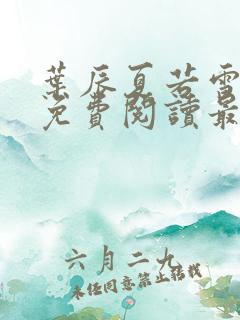 葉辰夏若雪
免費閱讀最
六月二九
未經同意禁止轉載